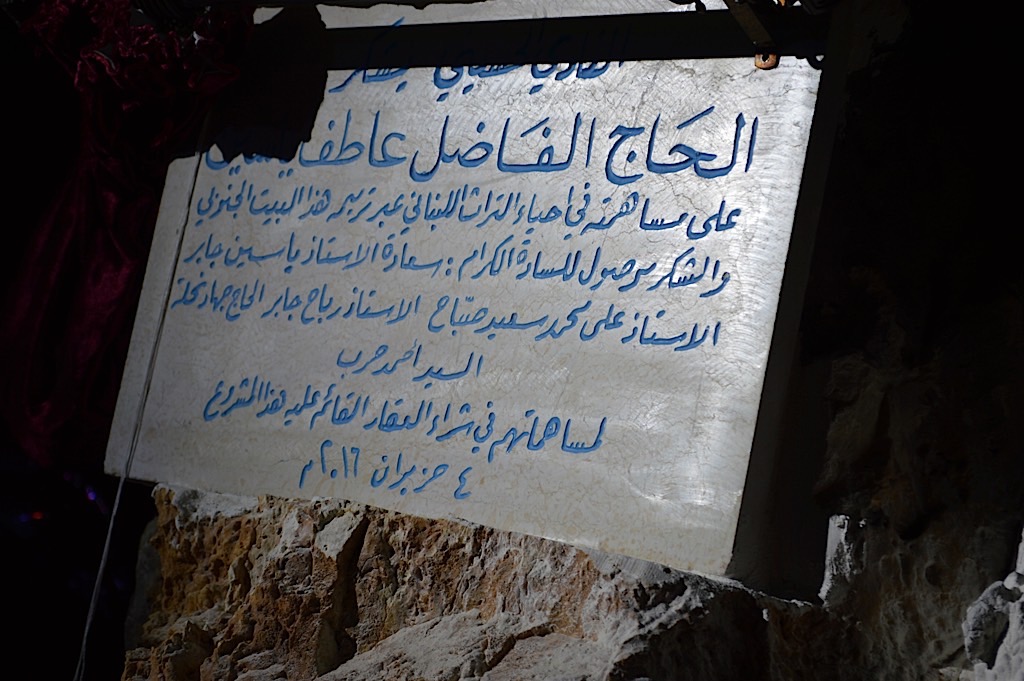 النادي الحسيني يشكر
الحاج الفاضل عاطف ياسين
على مساهمته في احياء التراث اللبناني عبر ترميم هذا البيت الجنوبي
والشكر موصول للسادة الكرام : سعادة الاستاذ ياسين جابر
الاستاذ على محمد سعيد صبّاح الاستاذ رباح جابر الحاج جهاد نحلة
السيد احمد حرب
لمساهماتهم في شراء العقار القائم عليه هذا المشروع
٤ حزيران ٢٠١٦ م